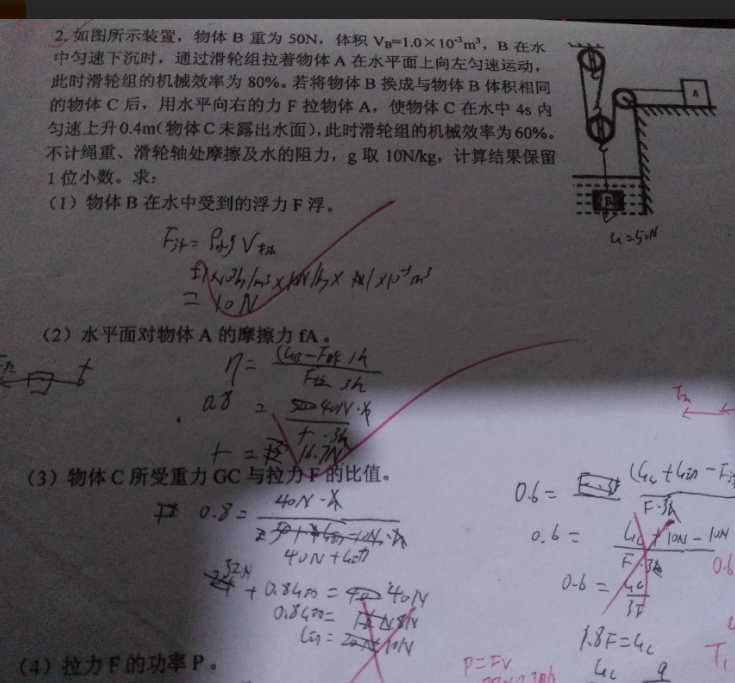 2. 如图所示装置，物体 B 重为 50N，体积 VB=1.0×10⁻³m³，B 在水
中匀速下沉时，通过滑轮组拉着物体 A 在水平面上向左匀速运动，
此时滑轮组的机械效率为 80%。若将物体 B 换成与物体 B 体积相同
的物体 C 后，用水平向右的力 F 拉物体 A，使物体 C 在水中 4s 内
匀速上升 0.4m(物体 C 未露出水面)，此时滑轮组的机械效率为 60%。
不计绳重、滑轮轴处摩擦及水的阻力，g 取 10N/kg，计算结果保留
1 位小数。求：
A
B
G=50N
（1）物体 B 在水中受到的浮力 F 浮。
F浮= ρ水g V排
= 10N
（2）水平面对物体 A 的摩擦力 fA。
η= (GB-F浮)h
3h
0.8 =
40N·h
f·3h
f = 16.7N
（3）物体 C 所受重力 GC 与拉力 F 的比值。
0.8= 40N·h
40N+G动
32N + 0.8G动 = 40N
0.8G动= 8N
G动= 10N
0.6=
F·3h
0.6 = GC+10N-10N
F·3h
0.6 = GC
3F
1.8F=GC
GC 9
（4）拉力 F 的功率 P。
P=Fv